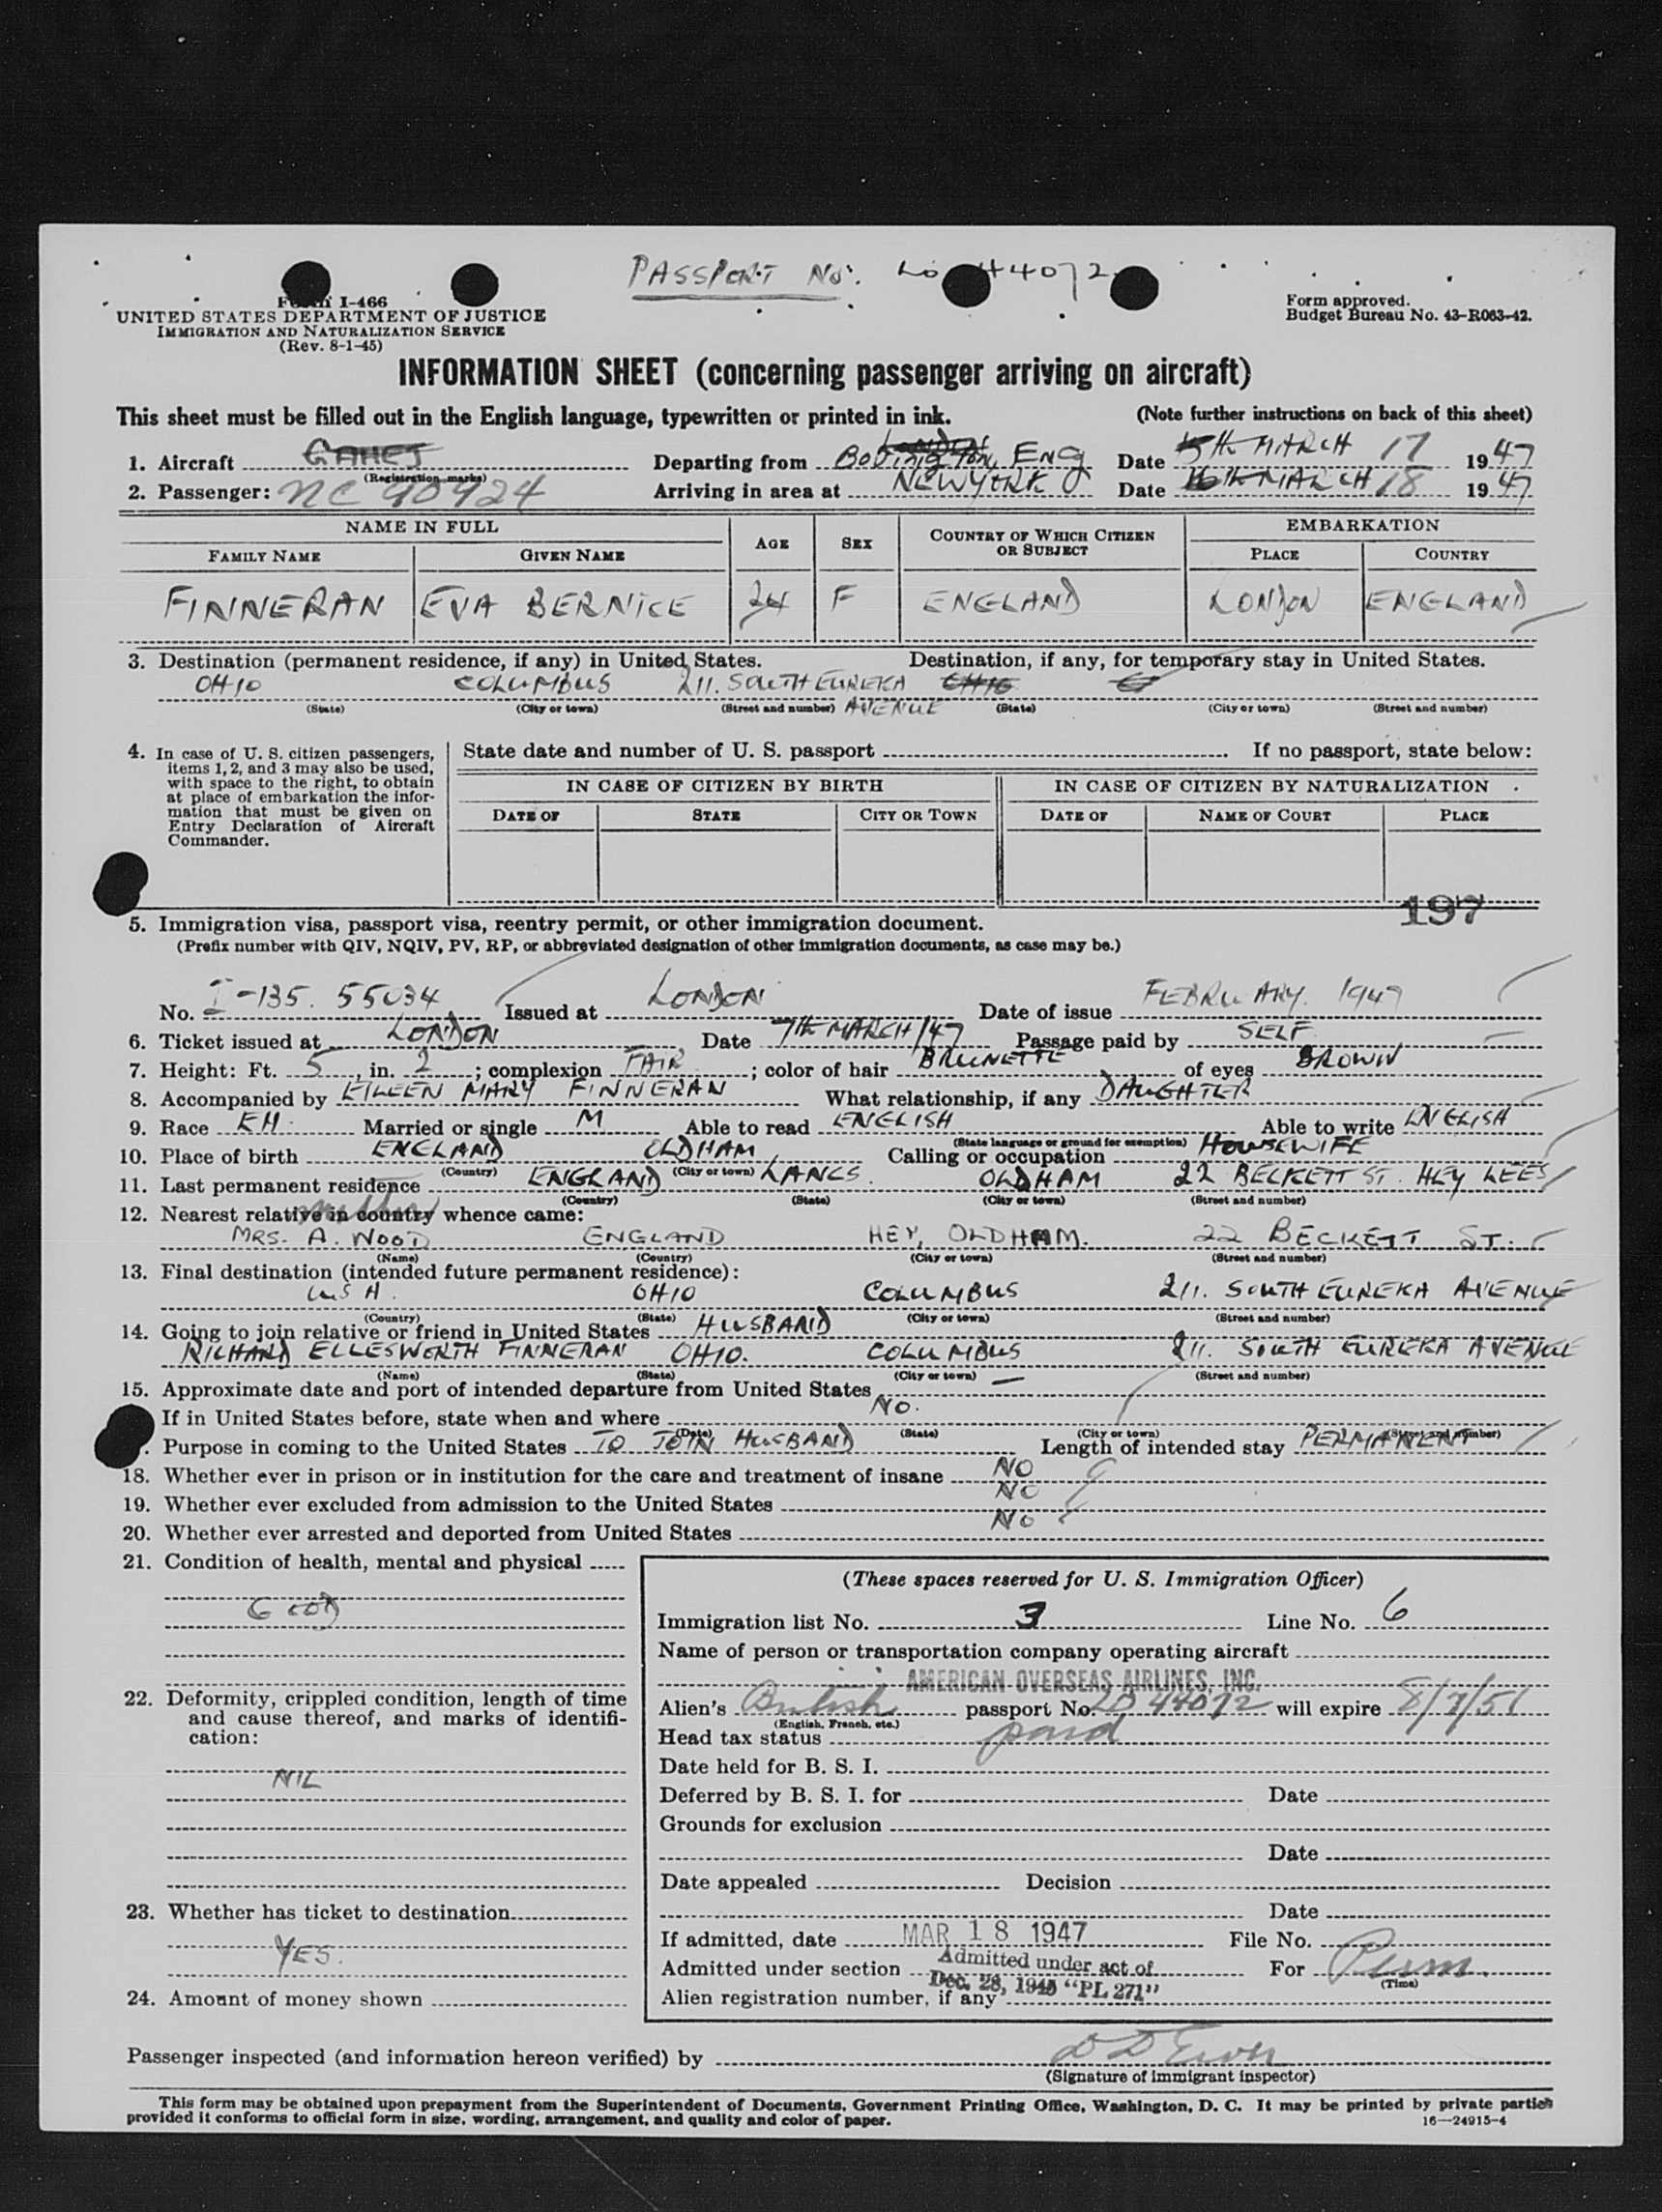 PASSPORT No: LO 44072
FORM I-466
UNITED STATES DEPARTMENT OF JUSTICE
IMMIGRATION AND NATURALIZATION SERVICE
(Rev. 8-1-45)
Form approved.
Budget Bureau No. 43-R063-42.
INFORMATION SHEET (concerning passenger arriving on aircraft)
This sheet must be filled out in the English language, typewritten or printed in ink. (Note further instructions on back of this sheet)
LONDON
1. Aircraft GAHEJ Departing from BOVINGTON, ENG Date 5th MARCH 17 1947
(Registration marks)
2. Passenger: NC 90924 Arriving in area at NEW YORK Date 16th MARCH 18 1947
NAME IN FULL AGE SEX COUNTRY OF WHICH CITIZEN OR SUBJECT EMBARKATION
FAMILY NAME GIVEN NAME PLACE COUNTRY
FINNERAN EVA BERNICE 24 F ENGLAND LONDON ENGLAND
3. Destination (permanent residence, if any) in United States. Destination, if any, for temporary stay in United States.
OHIO COLUMBUS 211. SOUTH EUREKA AVENUE OHIO
(State) (City or town) (Street and number) (State) (City or town) (Street and number)
4. In case of U. S. citizen passengers, items 1, 2, and 3 may also be used, with space to the right, to obtain at place of embarkation the information that must be given on Entry Declaration of Aircraft Commander.
State date and number of U. S. passport If no passport, state below:
IN CASE OF CITIZEN BY BIRTH IN CASE OF CITIZEN BY NATURALIZATION
DATE OF STATE CITY OR TOWN DATE OF NAME OF COURT PLACE
197
5. Immigration visa, passport visa, reentry permit, or other immigration document.
(Prefix number with QIV, NQIV, PV, RP, or abbreviated designation of other immigration documents, as case may be.)
No. I-135. 55034 Issued at LONDON Date of issue FEBRUARY. 1947
6. Ticket issued at LONDON Date 7th MARCH/47 Passage paid by SELF
7. Height: Ft. 5, in. 2; complexion FAIR; color of hair BRUNETTE of eyes BROWN
8. Accompanied by EILEEN MARY FINNERAN What relationship, if any DAUGHTER
9. Race EH. Married or single M Able to read ENGLISH Able to write ENGLISH
(State language or ground for exemption)
10. Place of birth ENGLAND OLDHAM Calling or occupation HOUSEWIFE
(Country) (City or town)
11. Last permanent residence ENGLAND LANCS. OLDHAM 22 BECKETT ST. HEY LEES
(Country) (State) (City or town) (Street and number)
12. Nearest relative in country whence came: mother
MRS. A. WOOD ENGLAND HEY, OLDHAM. 22 BECKETT ST.
(Name) (Country) (City or town) (Street and number)
13. Final destination (intended future permanent residence):
USA. OHIO COLUMBUS 211. SOUTH EUREKA AVENUE
(Country) (State) (City or town) (Street and number)
14. Going to join relative or friend in United States HUSBAND
RICHARD ELLESWORTH FINNERAN OHIO. COLUMBUS 211. SOUTH EUREKA AVENUE
(Name) (State) (City or town) (Street and number)
15. Approximate date and port of intended departure from United States —
If in United States before, state when and where NO.
(Date) (State) (City or town) (Street and number)
Purpose in coming to the United States TO JOIN HUSBAND Length of intended stay PERMANENT
18. Whether ever in prison or in institution for the care and treatment of insane NO
19. Whether ever excluded from admission to the United States NO
20. Whether ever arrested and deported from United States NO
21. Condition of health, mental and physical
GOOD
22. Deformity, crippled condition, length of time and cause thereof, and marks of identification:
NIL
23. Whether has ticket to destination
YES.
24. Amount of money shown
(These spaces reserved for U. S. Immigration Officer)
Immigration list No. 3 Line No. 6
Name of person or transportation company operating aircraft
AMERICAN OVERSEAS AIRLINES, INC.
Alien's British passport No. LO 44072 will expire 8/7/51
(English, French, etc.)
Head tax status paid
Date held for B. S. I.
Deferred by B. S. I. for Date
Grounds for exclusion
Date
Date appealed Decision
Date
If admitted, date MAR 18 1947 File No.
Admitted under section Admitted under act of For Perm.
(Time)
Dec. 28, 1945 "PL 271"
Alien registration number, if any
Passenger inspected (and information hereon verified) by
(Signature of immigrant inspector)
This form may be obtained upon prepayment from the Superintendent of Documents, Government Printing Office, Washington, D. C. It may be printed by private parties
provided it conforms to official form in size, wording, arrangement, and quality and color of paper. 16—24915-4